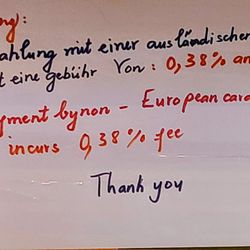 ng:
ahlung mit einer ausländischen
t eine gebühr Von: 0,38% an
yment by non - European card
incurs 0,38% fee
Thank you